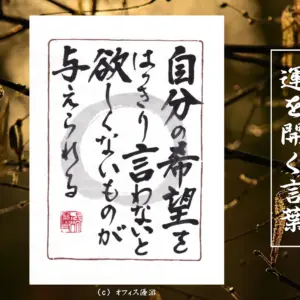 自分の希望を
はっきり言わないと
欲しくないものが
与えられる
運を開く言葉
(c) オフィス優游